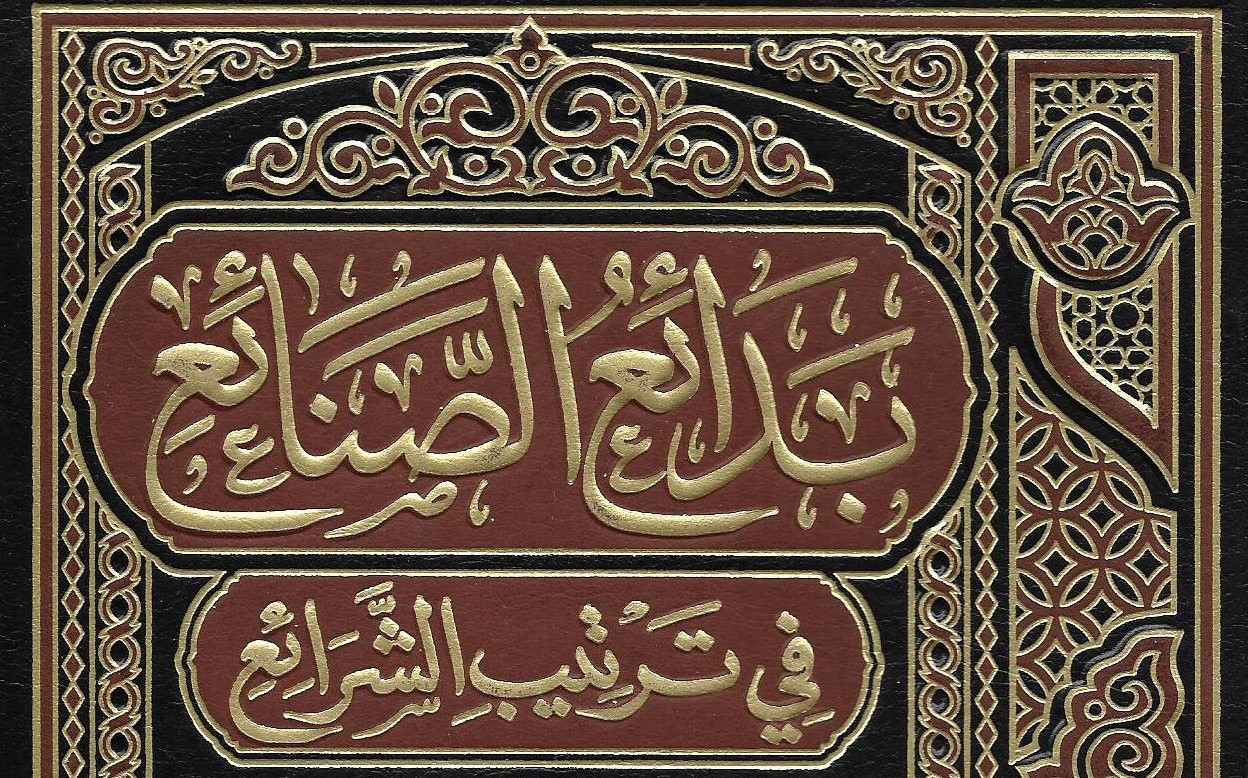 بَدَائِعُ الصَّنَائِعِ
فِي تَرْتِيبِ الشَّرَائِعِ